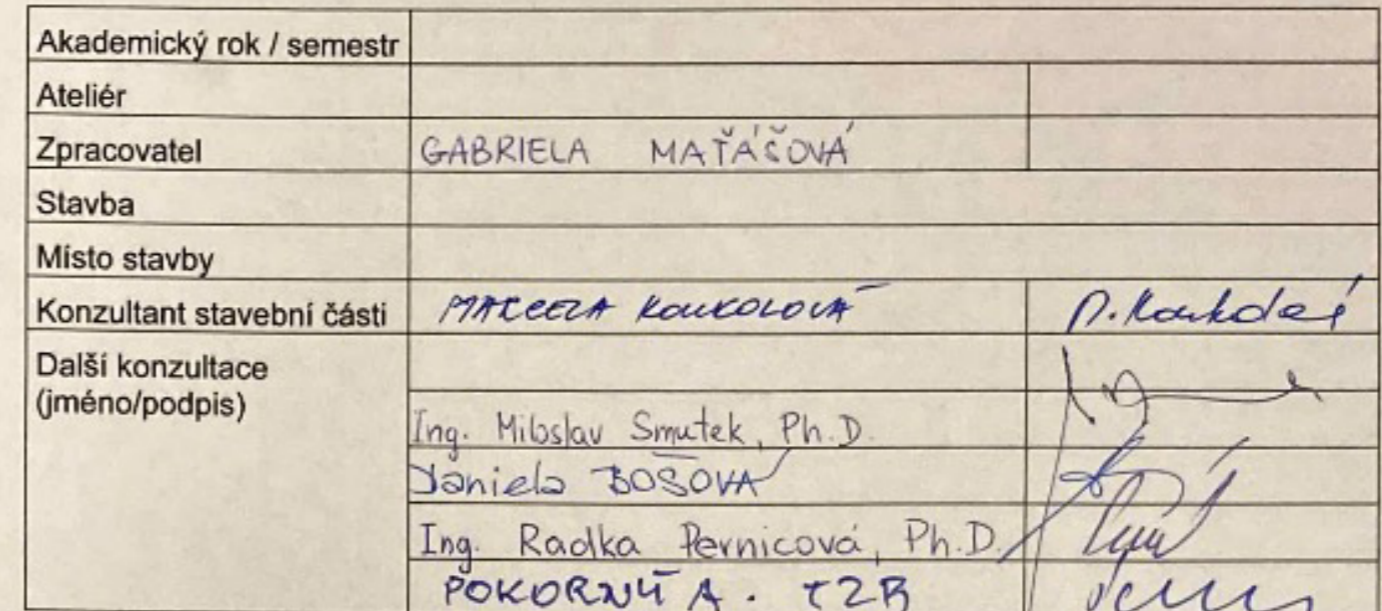 Akademický rok / semestr
Ateliér
Zpracovatel GABRIELA MAŤÁŠOVÁ
Stavba
Místo stavby
Konzultant stavební části MARCELA KOUKOLOVÁ M. Koukolová
Další konzultace
(jméno/podpis)
Ing. Miloslav Smutek, Ph.D.
Daniela BOŠOVÁ
Ing. Radka Pernicová, Ph.D.
POKORNÝ A. TZB